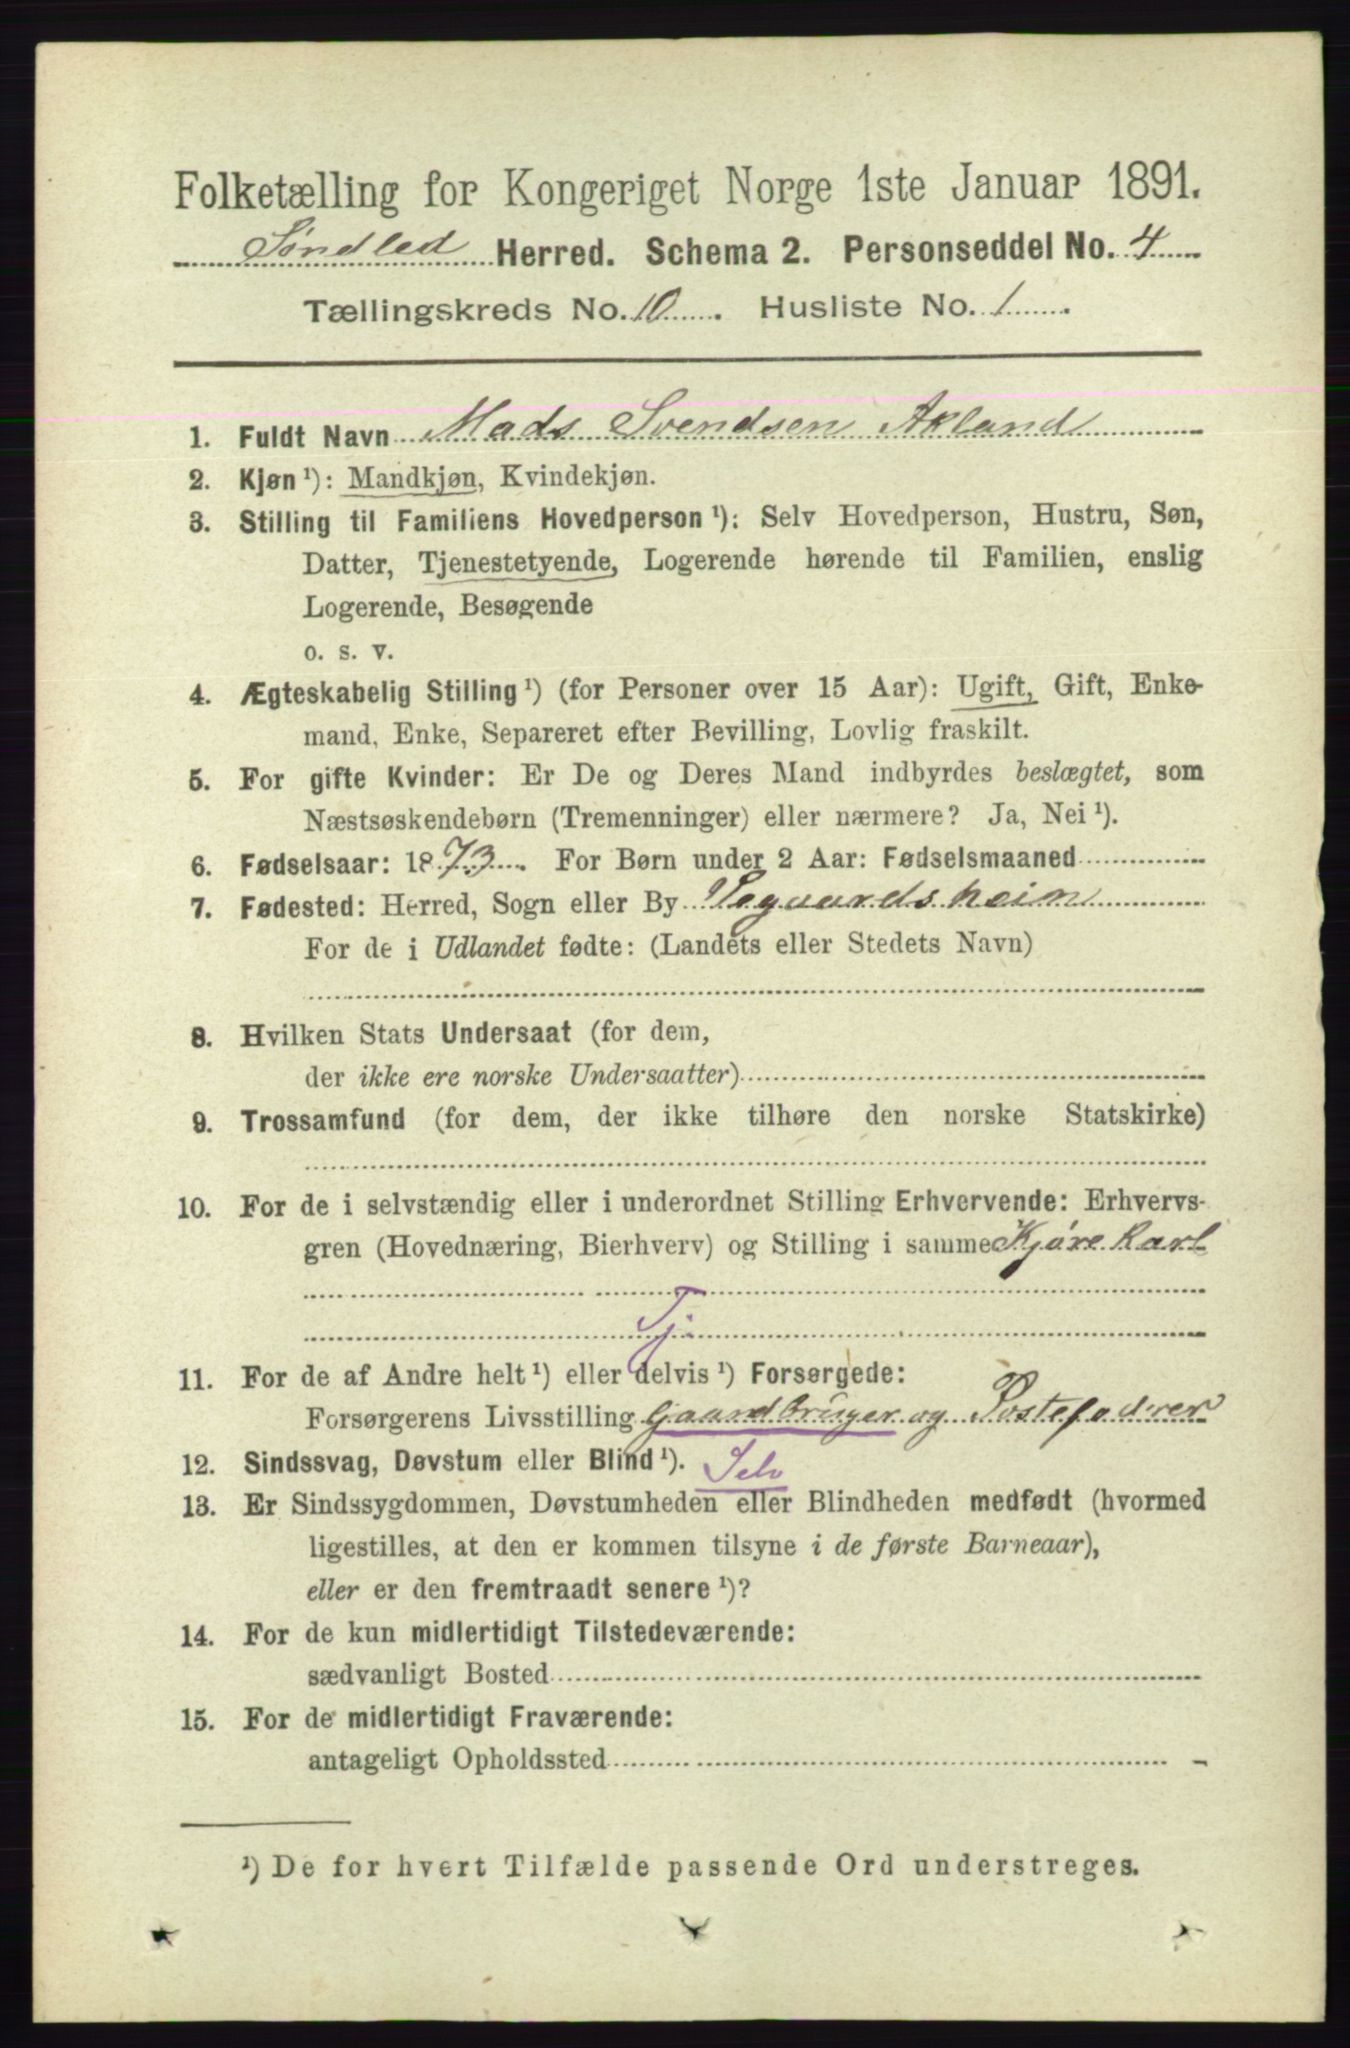 Folketælling for Kongeriget Norge 1ste Januar 1891.
Søndled Herred. Schema 2. Personseddel No. 4
Tællingskreds No. 10. Husliste No. 1.
1. Fuldt Navn Mads Svendsen Akland
2. Kjøn ¹): Mandkjøn, Kvindekjøn.
3. Stilling til Familiens Hovedperson ¹): Selv Hovedperson, Hustru, Søn,
Datter, Tjenestetyende, Logerende hørende til Familien, enslig
Logerende, Besøgende
o. s. v.
4. Ægteskabelig Stilling ¹) (for Personer over 15 Aar): Ugift, Gift, Enke-
mand, Enke, Separeret efter Bevilling, Lovlig fraskilt.
5. For gifte Kvinder: Er De og Deres Mand indbyrdes beslægtet, som
Næstsøskendebørn (Tremenninger) eller nærmere? Ja, Nei ¹).
6. Fødselsaar: 1873. For Børn under 2 Aar: Fødselsmaaned
7. Fødested: Herred, Sogn eller By Vegaardsheim
For de i Udlandet fødte: (Landets eller Stedets Navn)
8. Hvilken Stats Undersaat (for dem,
der ikke ere norske Undersaatter)
9. Trossamfund (for dem, der ikke tilhøre den norske Statskirke)
10. For de i selvstændig eller i underordnet Stilling Erhvervende: Erhvervs-
gren (Hovednæring, Bierhverv) og Stilling i samme Kjøre Karl
Tj
11. For de af Andre helt ¹) eller delvis ¹) Forsørgede:
Forsørgerens Livsstilling Gaardbruger og Posteförer
12. Sindssvag, Døvstum eller Blind ¹). Selv
13. Er Sindssygdommen, Døvstumheden eller Blindheden medfødt (hvormed
ligestilles, at den er kommen tilsyne i de første Barneaar),
eller er den fremtraadt senere ¹)?
14. For de kun midlertidigt Tilstedeværende:
sædvanligt Bosted
15. For de midlertidigt Fraværende:
antageligt Opholdssted
¹) De for hvert Tilfælde passende Ord understreges.